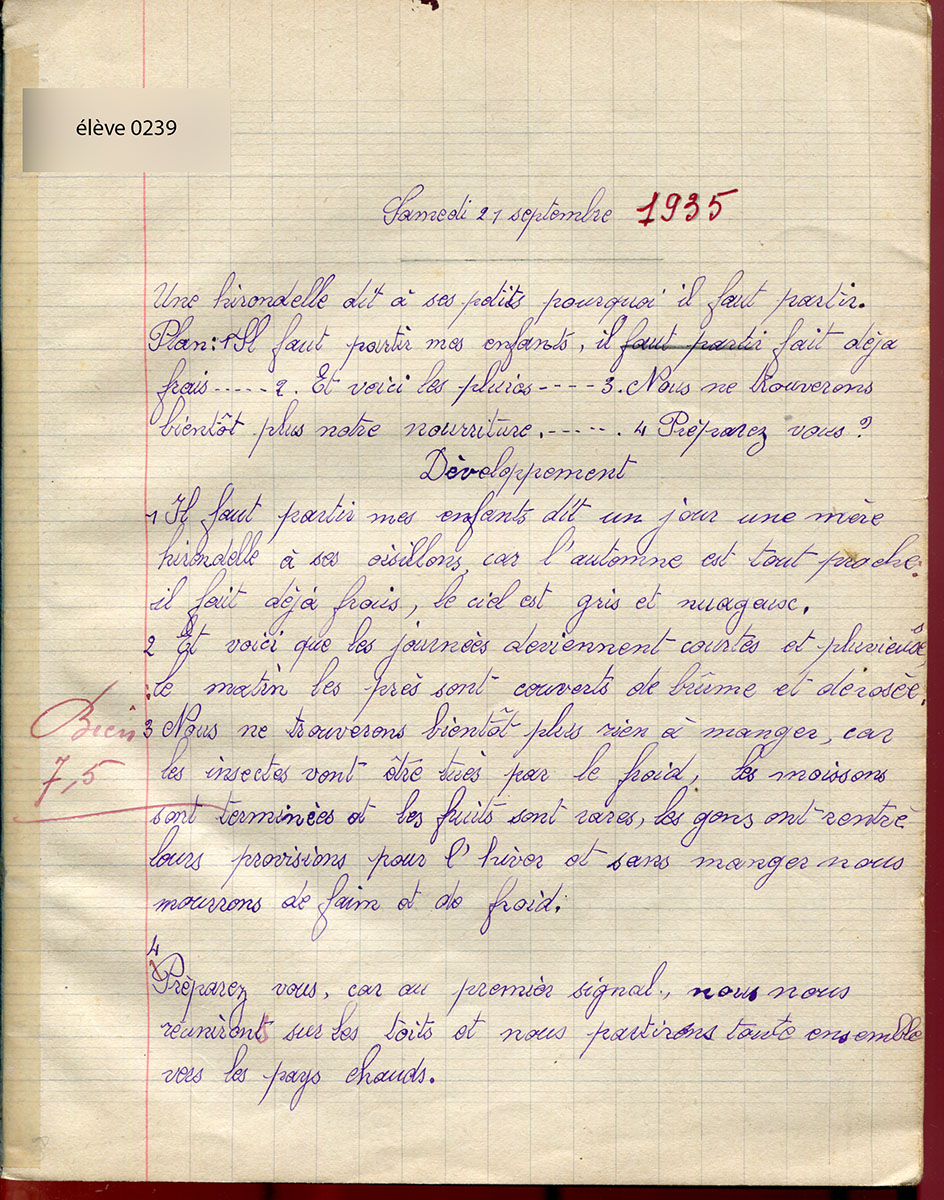 élève 0239
Samedi 21 septembre 1935
Une hirondelle dit à ses petits pourquoi il faut partir.
Plan: 1 Il faut partir mes enfants, il faut partir fait déjà
frais ..... 2. Et voici les pluies ---- 3. Nous ne trouverons
bientôt plus notre nourriture. ----- . 4 Préparez vous ?
Développement
1 Il faut partir mes enfants dit un jour une mère
hirondelle à ses oisillons, car l'automne est tout proche:
il fait déjà frais, le ciel est gris et nuageux.
2 Et voici que les journées deviennent courtes et pluvieuses,
le matin les près sont couverts de brûme et derosée.
Bien 3 Nous ne trouverons bientôt plus rien à manger, car
7,5 les insectes vont être tués par le froid, les moissons
sont terminées et les fruits sont rares, les gens ont rentré
leurs provisions pour l'hiver et sans manger nous
mourrons de faim et de froid.
4
Préparez vous, car au premier signal, nous nous
réunironts sur les toits et nous partirons toute ensemble
vers les pays chauds.